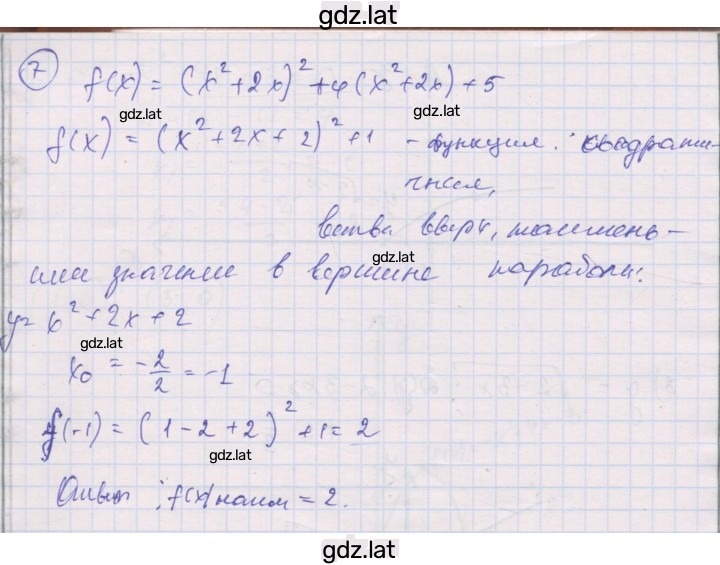 gdz.lat
7
f(x) = (x² + 2x)² + 4(x² + 2x) + 5
gdz.lat
f(x) = (x² + 2x + 2)² + 1 - функция квадрати-
чная,
ветви вверх, наимень-
gdz.lat
шее значение в вершине параболы.
y = x² + 2x + 2
gdz.lat
x₀ = -2/2 = -1
f(-1) = (1 - 2 + 2)² + 1 = 2
gdz.lat
Ответ: f(x) наим = 2.
gdz.lat
gdz.lat